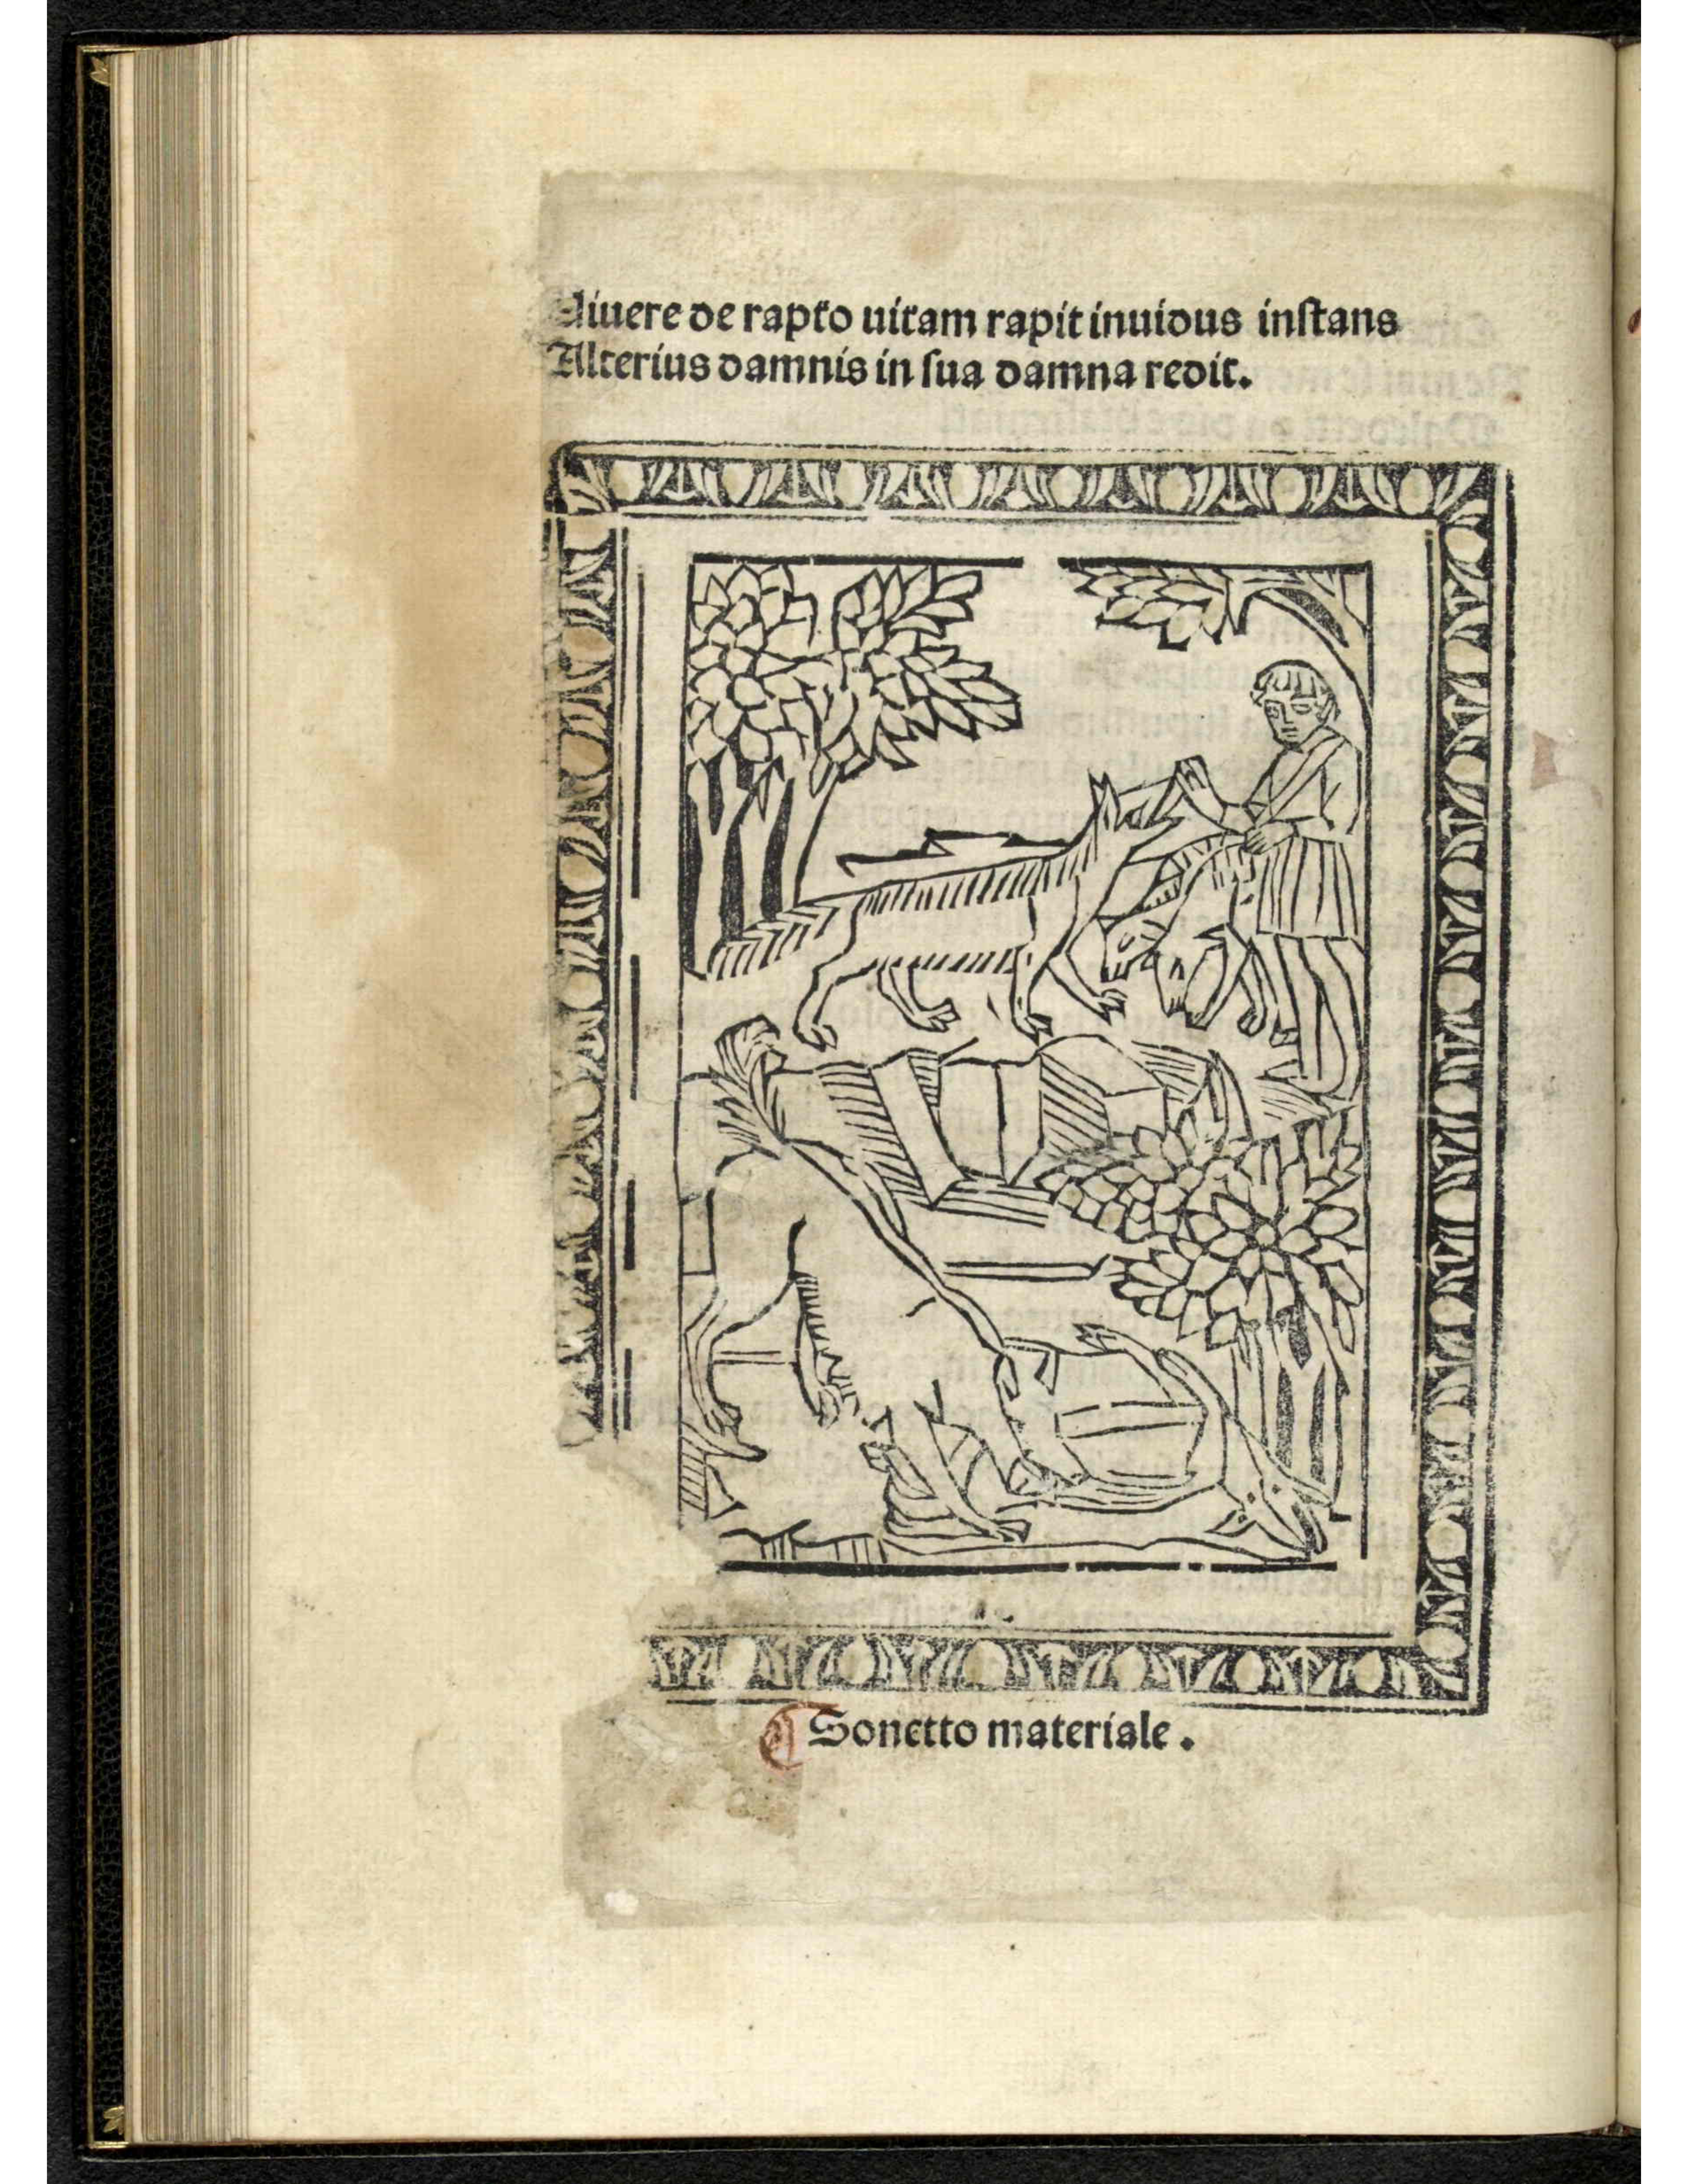 Viuere de rapto uitam rapit inuidus inſtans
Alterius damnis in ſua damna redit.
Sonetto materiale.